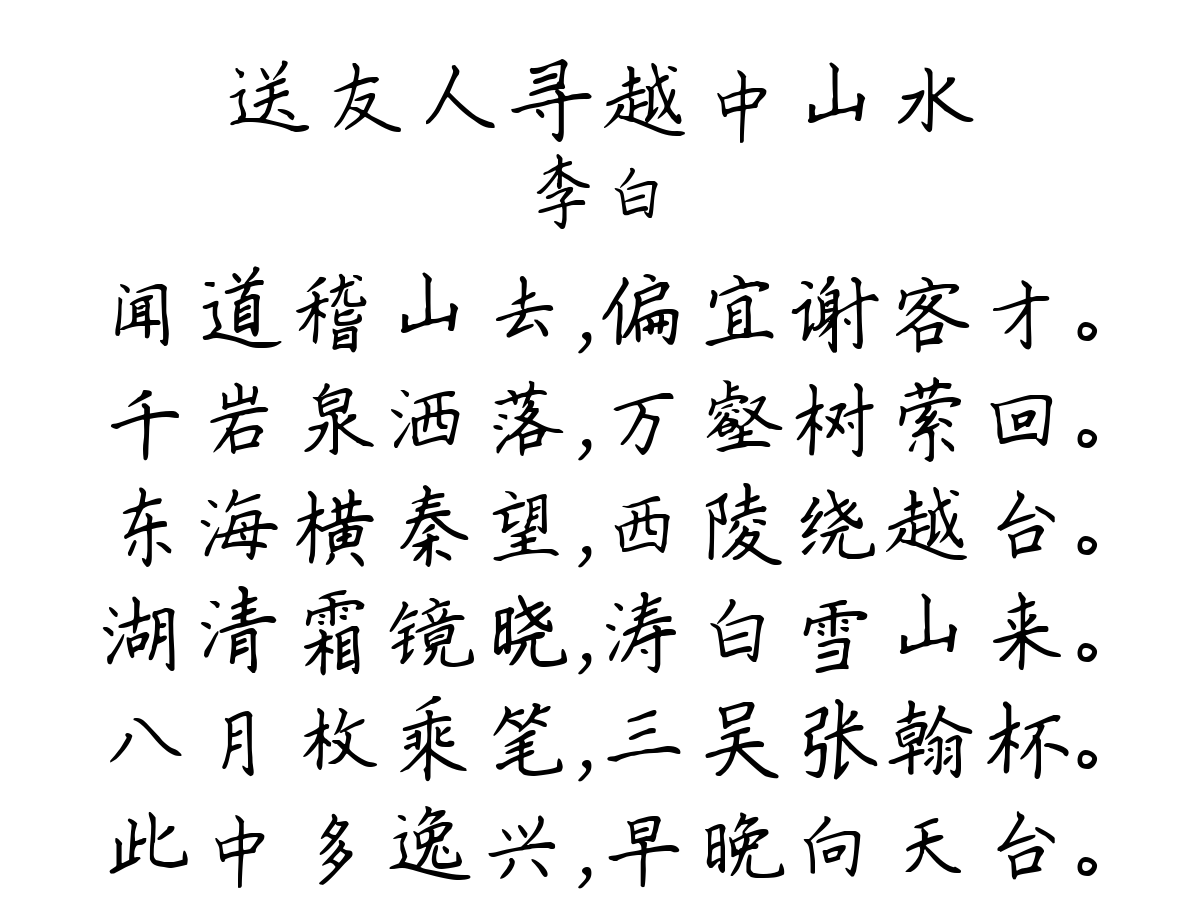 送友人寻越中山水
李白
闻道稽山去,偏宜谢客才。
千岩泉洒落,万壑树萦回。
东海横秦望,西陵绕越台。
湖清霜镜晓,涛白雪山来。
八月枚乘笔,三吴张翰杯。
此中多逸兴,早晚向天台。